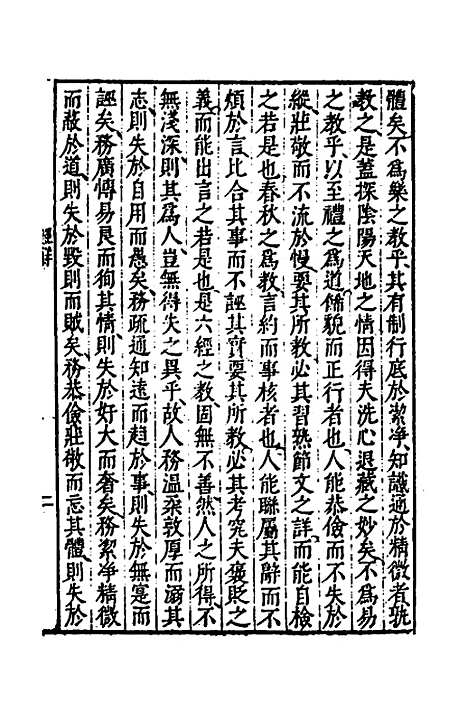 體矣不爲樂之教乎其有制行底於絜净知識通於精微者號
教之是蓋探陰陽天地之情因得夫洗心退藏之妙矣不爲易
之教乎以至禮之爲道飾貌而正行者也人能恭儉而不失於
縱莊敬而不流於慢要其所教必其習熟節文之詳而能自檢
之若是也春秋之爲教言約而事核者也人能聯屬其辭而不
煩於言比合其事而不誣其實要其所教必其考究夫褒貶之
義而能出言之若是也是六經之教固無不善然人之所得不
無淺深則其爲人豈無得失之異乎故人務温柔敦厚而溺其
志則失於自用而愚矣務疏通知遠而趋於事則失於無寔而
誣矣務廣博易良而徇其情則失於好大而奢矣務絜净精微
而蔽於道則失於毀則而賊矣務恭儉莊敬而忘其體則失於
經解
二